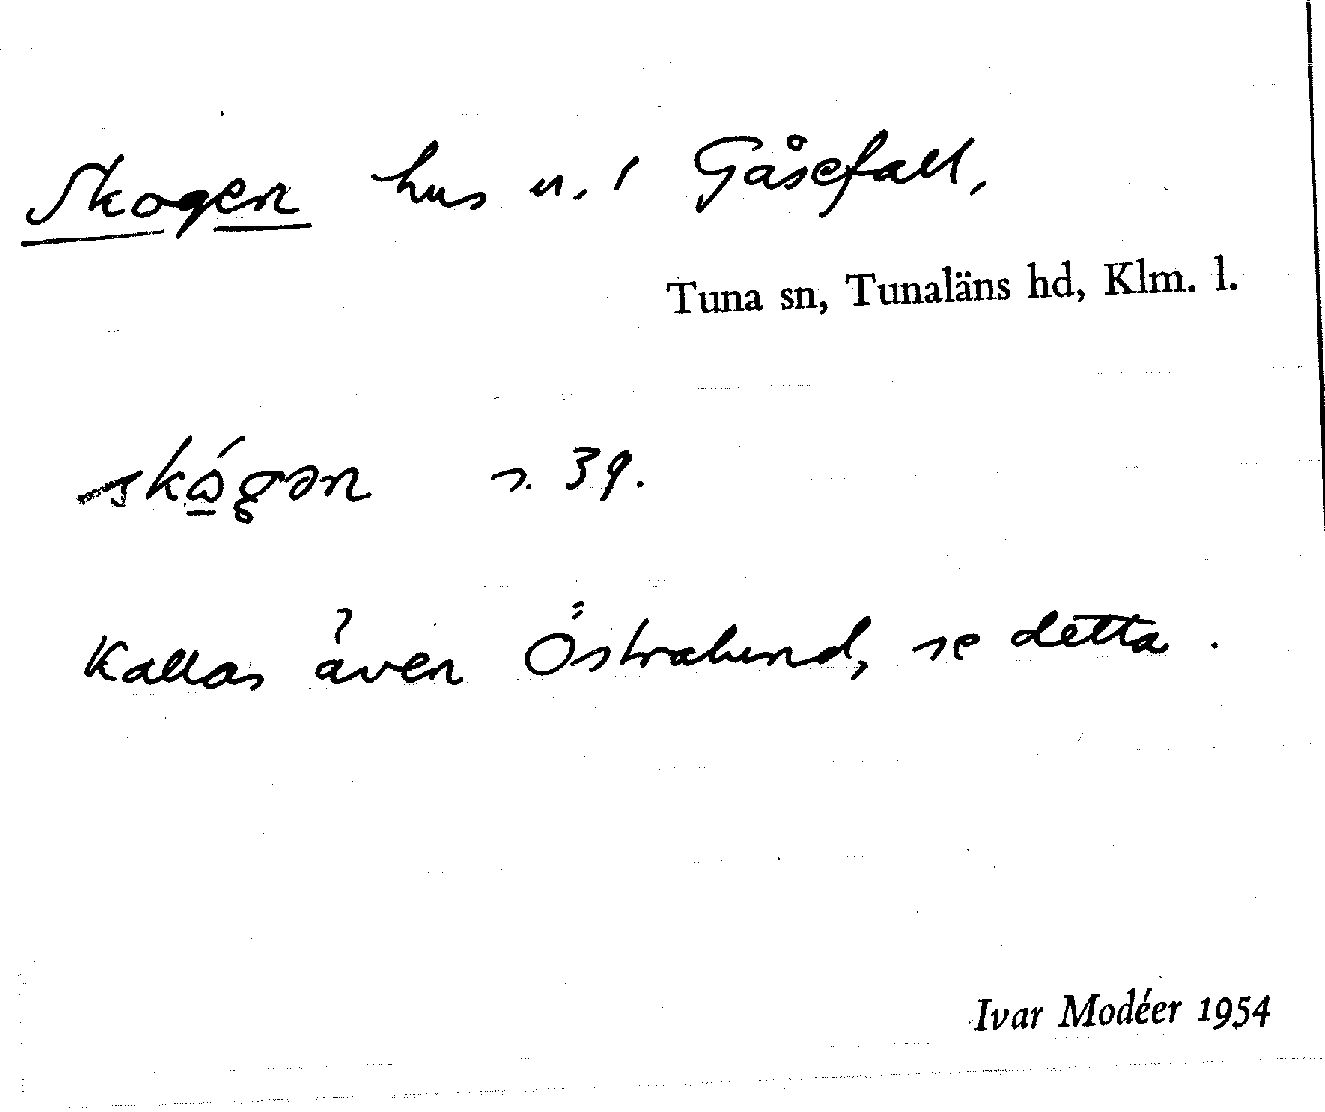 Skogen hus u. i Gåsefall,
Tuna sn, Tunaläns hd, Klm. l.
s. 39.
Kallas även Östralund, se detta.
Ivar Modéer 1954